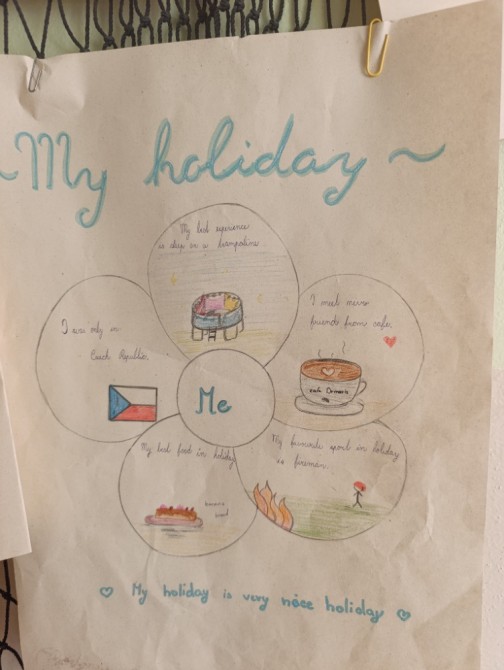 ~ My holiday ~
My best experience
is sleep in a trampoline.
I was only in
Czech Republic.
I meet new
friends from cafe.
café
Me
My best food in holiday
banana
bread
My favourite sport in holiday
is fireman.
♡ My holiday is very nice holiday ♡